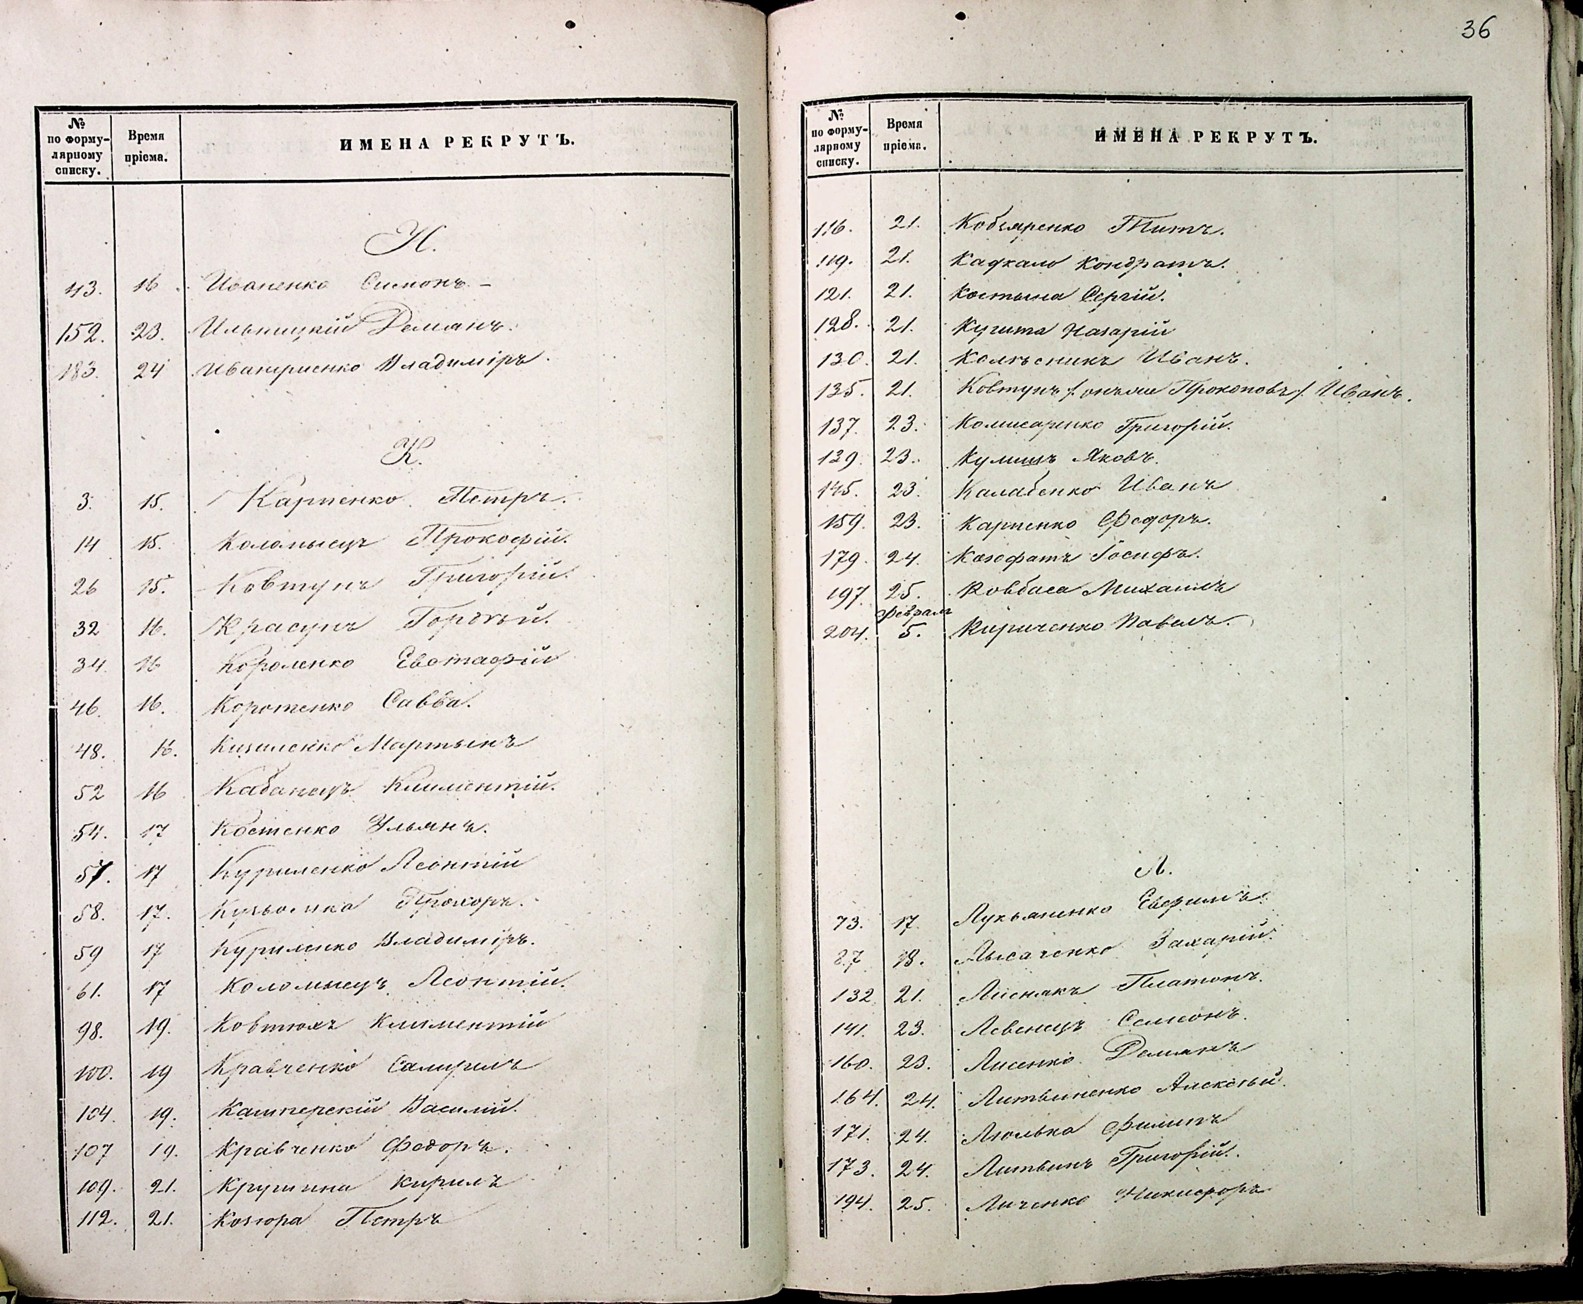 36
№ по форму-лярному списку. Время пріема. ИМЕНА РЕКРУТЪ.
И.
43. 16 Иваненко Симонъ -
152. 23. Ильницкій Демянъ.
183. 24 Иващенко Владиміръ.
К.
3. 15. Карпенко Петръ.
14 15. Коломыецъ Прокофій.
26 15. Ковтунъ Григорій.
32 16. Красунъ Гордѣй.
34 16 Короленко Евстафій
46. 16. Коротенко Савва.
48. 16. Кизиленко Мартынъ
52 16 Кабанецъ Климентій.
54. 17 Костенко Ульянъ.
57. 17 Куриленко Леонтій
58. 17. Прохоръ.
59 17 Куриленко Владиміръ.
61. 17 Коломыецъ Леонтій.
98. 19. Ковтюхъ Климентій
100. 19 Кравченко
104. 19. Василій.
107 19. Кравченко Федоръ.
109. 21. Крушина Кирилъ
112. 21. Козюра Петръ
№ по форму-лярному списку. Время пріема. ИМЕНА РЕКРУТЪ.
116. 21. Титъ.
119. 21. Кадкало Кондратъ.
121. 21. Костына Сергій.
128. 21. Назарій
130. 21. Колѣсникъ Иванъ.
135. 21. Ковтунъ /: онъ же Прокоповъ :/ Иванъ.
137. 23. Комисаренко Григорій.
139. 23. Кулишъ Яковъ.
145. 23. Калабенко Иванъ
159. 23. Карпенко Федоръ.
179. 24. Іосифъ.
197. 25. Ковбаса Михаилъ
Февраля
204. 5. Кириченко Павелъ.
Л.
73. 17. Лукьяненко Евфимъ.
87 18. Лысаченко Захарій.
132 21. Лиснякъ Платонъ.
141. 23. Левенецъ Семіонъ.
160. 23. Лисенко Демянъ
164. 24. Литвиненко Алексѣй.
171. 24. Люлька Филипъ
173. 24. Литвинъ Григорій.
194. 25. Никифоръ